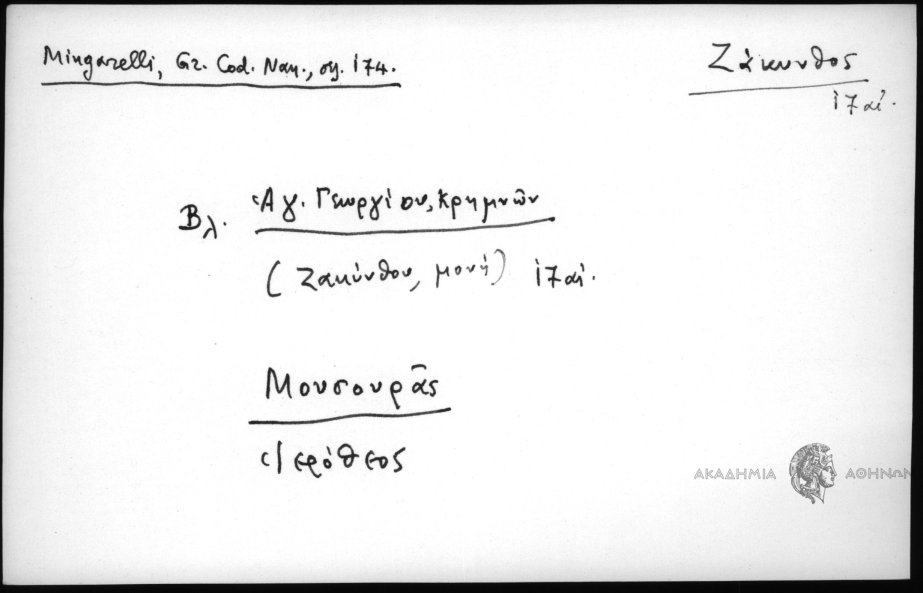 Mingarelli, Gr. Cod. Nan., σγ. 174.
Ζάκυνθος
17 αἰ.
Βλ. Ἁγ. Γεωργίου, Κρημνῶν
(Ζακύνθου, μονή) 17 αἰ.
Μουσουρᾶς
Ἱερόθεος
ΑΚΑΔΗΜΙΑ ΑΘΗΝΩΝ